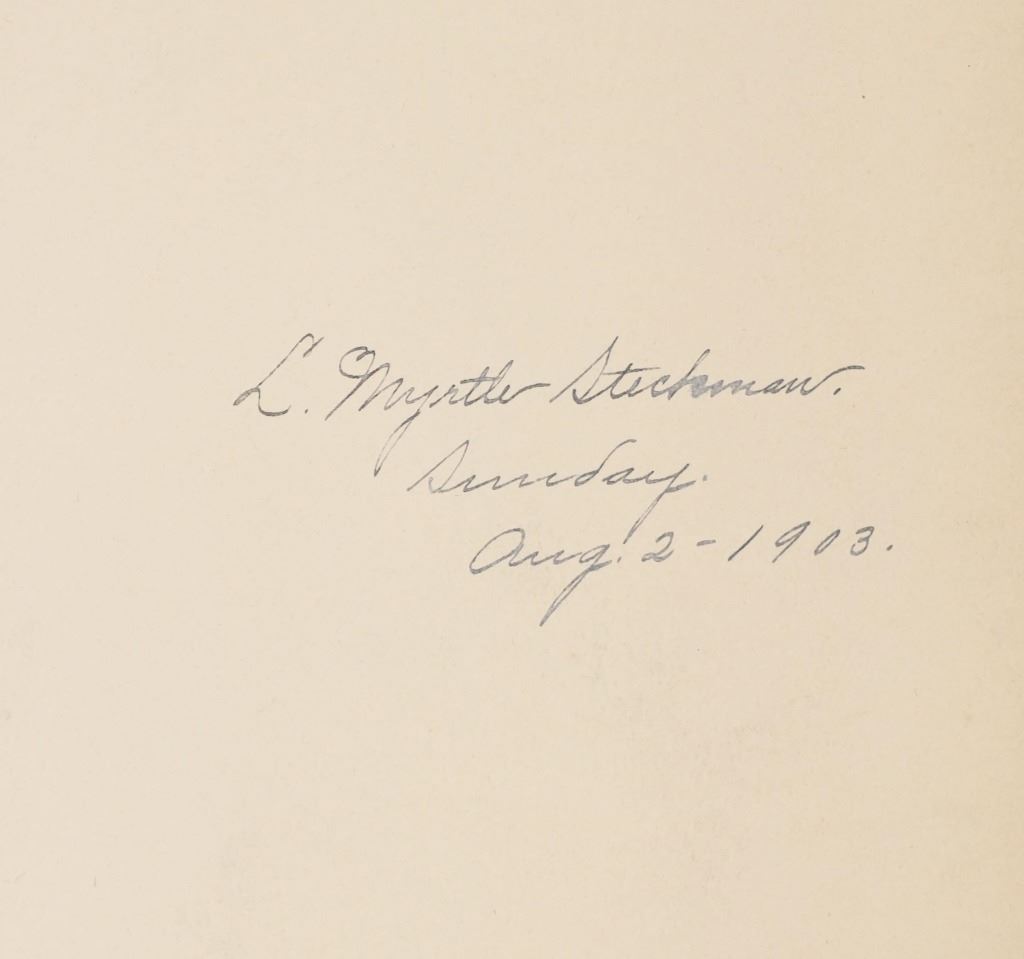 L. Myrtle Steckman.
Sunday.
Aug. 2 - 1903.